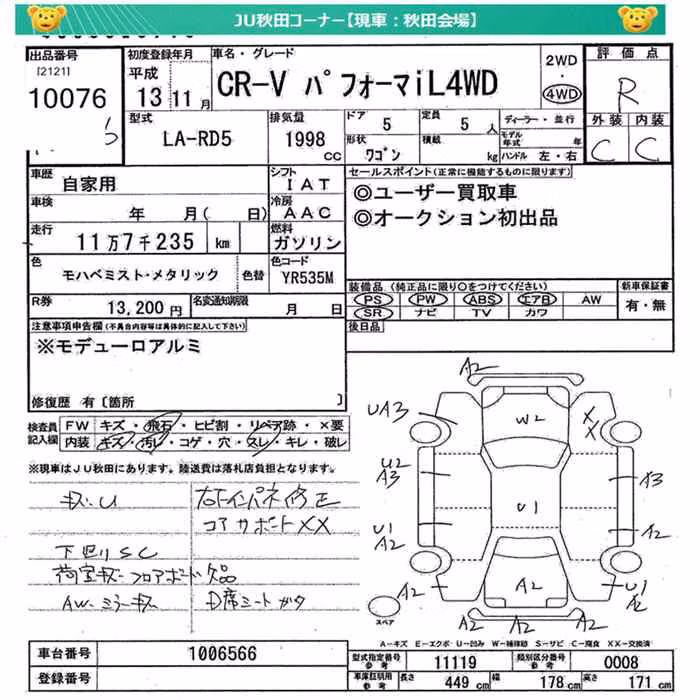 JU秋田コーナー【現車：秋田会場】
出品番号
[2121]
10076
初度登録年月
平成
13年11月
車名・グレード
CR-V パフォーマiL4WD
2WD
・
4WD
評価点
R
外装 内装
C C
型式
LA-RD5
排気量
1998
CC
ドア
5
定員
5人
形状
ワゴン
積載
kg
ディーラー・並行
モデル年式 年
ハンドル 左・右
車歴
自家用
シフト
IAT
車検
年 月( 日)
冷房
AAC
走行
11万7千235 km
燃料
ガソリン
色
モハベミスト・メタリック
色替
色コード
YR535M
R券
13,200円
名変通知期限
月 日
セールスポイント(正常に機能するものに限ります)
◎ユーザー買取車
◎オークション初出品
装備品(純正品に限り○をつけてください)
PS PW ABS エアB AW
SR ナビ TV カワ
新車保証書
有・無
後日品
注意事項申告欄(不具合内容等は具体的に記入して下さい)
※モデューロアルミ
修復歴 有〔箇所 〕
検査員記入欄
FW キズ・飛石・ヒビ割・リペア跡・×要
内装 キズ・汚れ・コゲ・穴・スレ・キレ・破レ
※現車はJU秋田にあります。陸送費は落札店負担となります。
キズU
右インパネ修正
コアサポートXX
下廻りSC
荷室キズ フロアボード欠品
AW・ミラーキズ
D席シートガタ
A2
UA3
W2
XX
U2
A3
A3
U1
U1
A2
A2
A2
A2
U1
A2
A2 A2 A2
スペア
A-キズ E-エクボ U-凹み W-補修跡 S-サビ C-腐食 XX-交換済
車台番号
1006566
登録番号
型式指定番号
参考
11119
類別区分番号
参考
0008
車庫証明用
参考
長さ 449 cm 幅 178 cm 高さ 171 cm